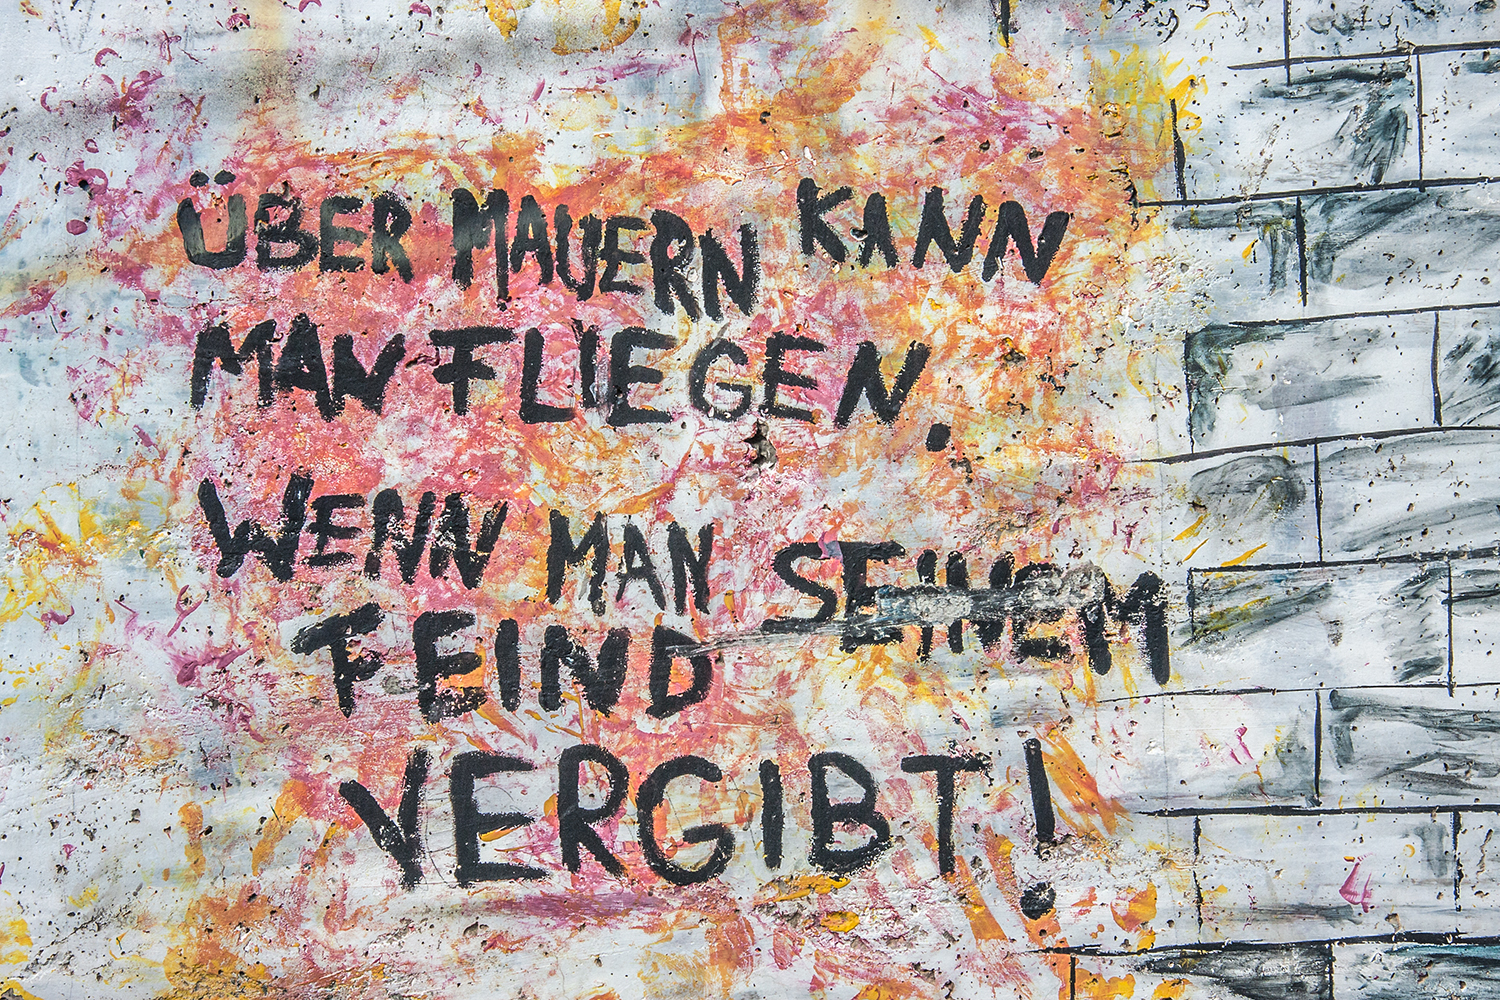 ÜBER MAUERN KANN
MAN FLIEGEN.
WENN MAN SEINEM
FEIND
VERGIBT!